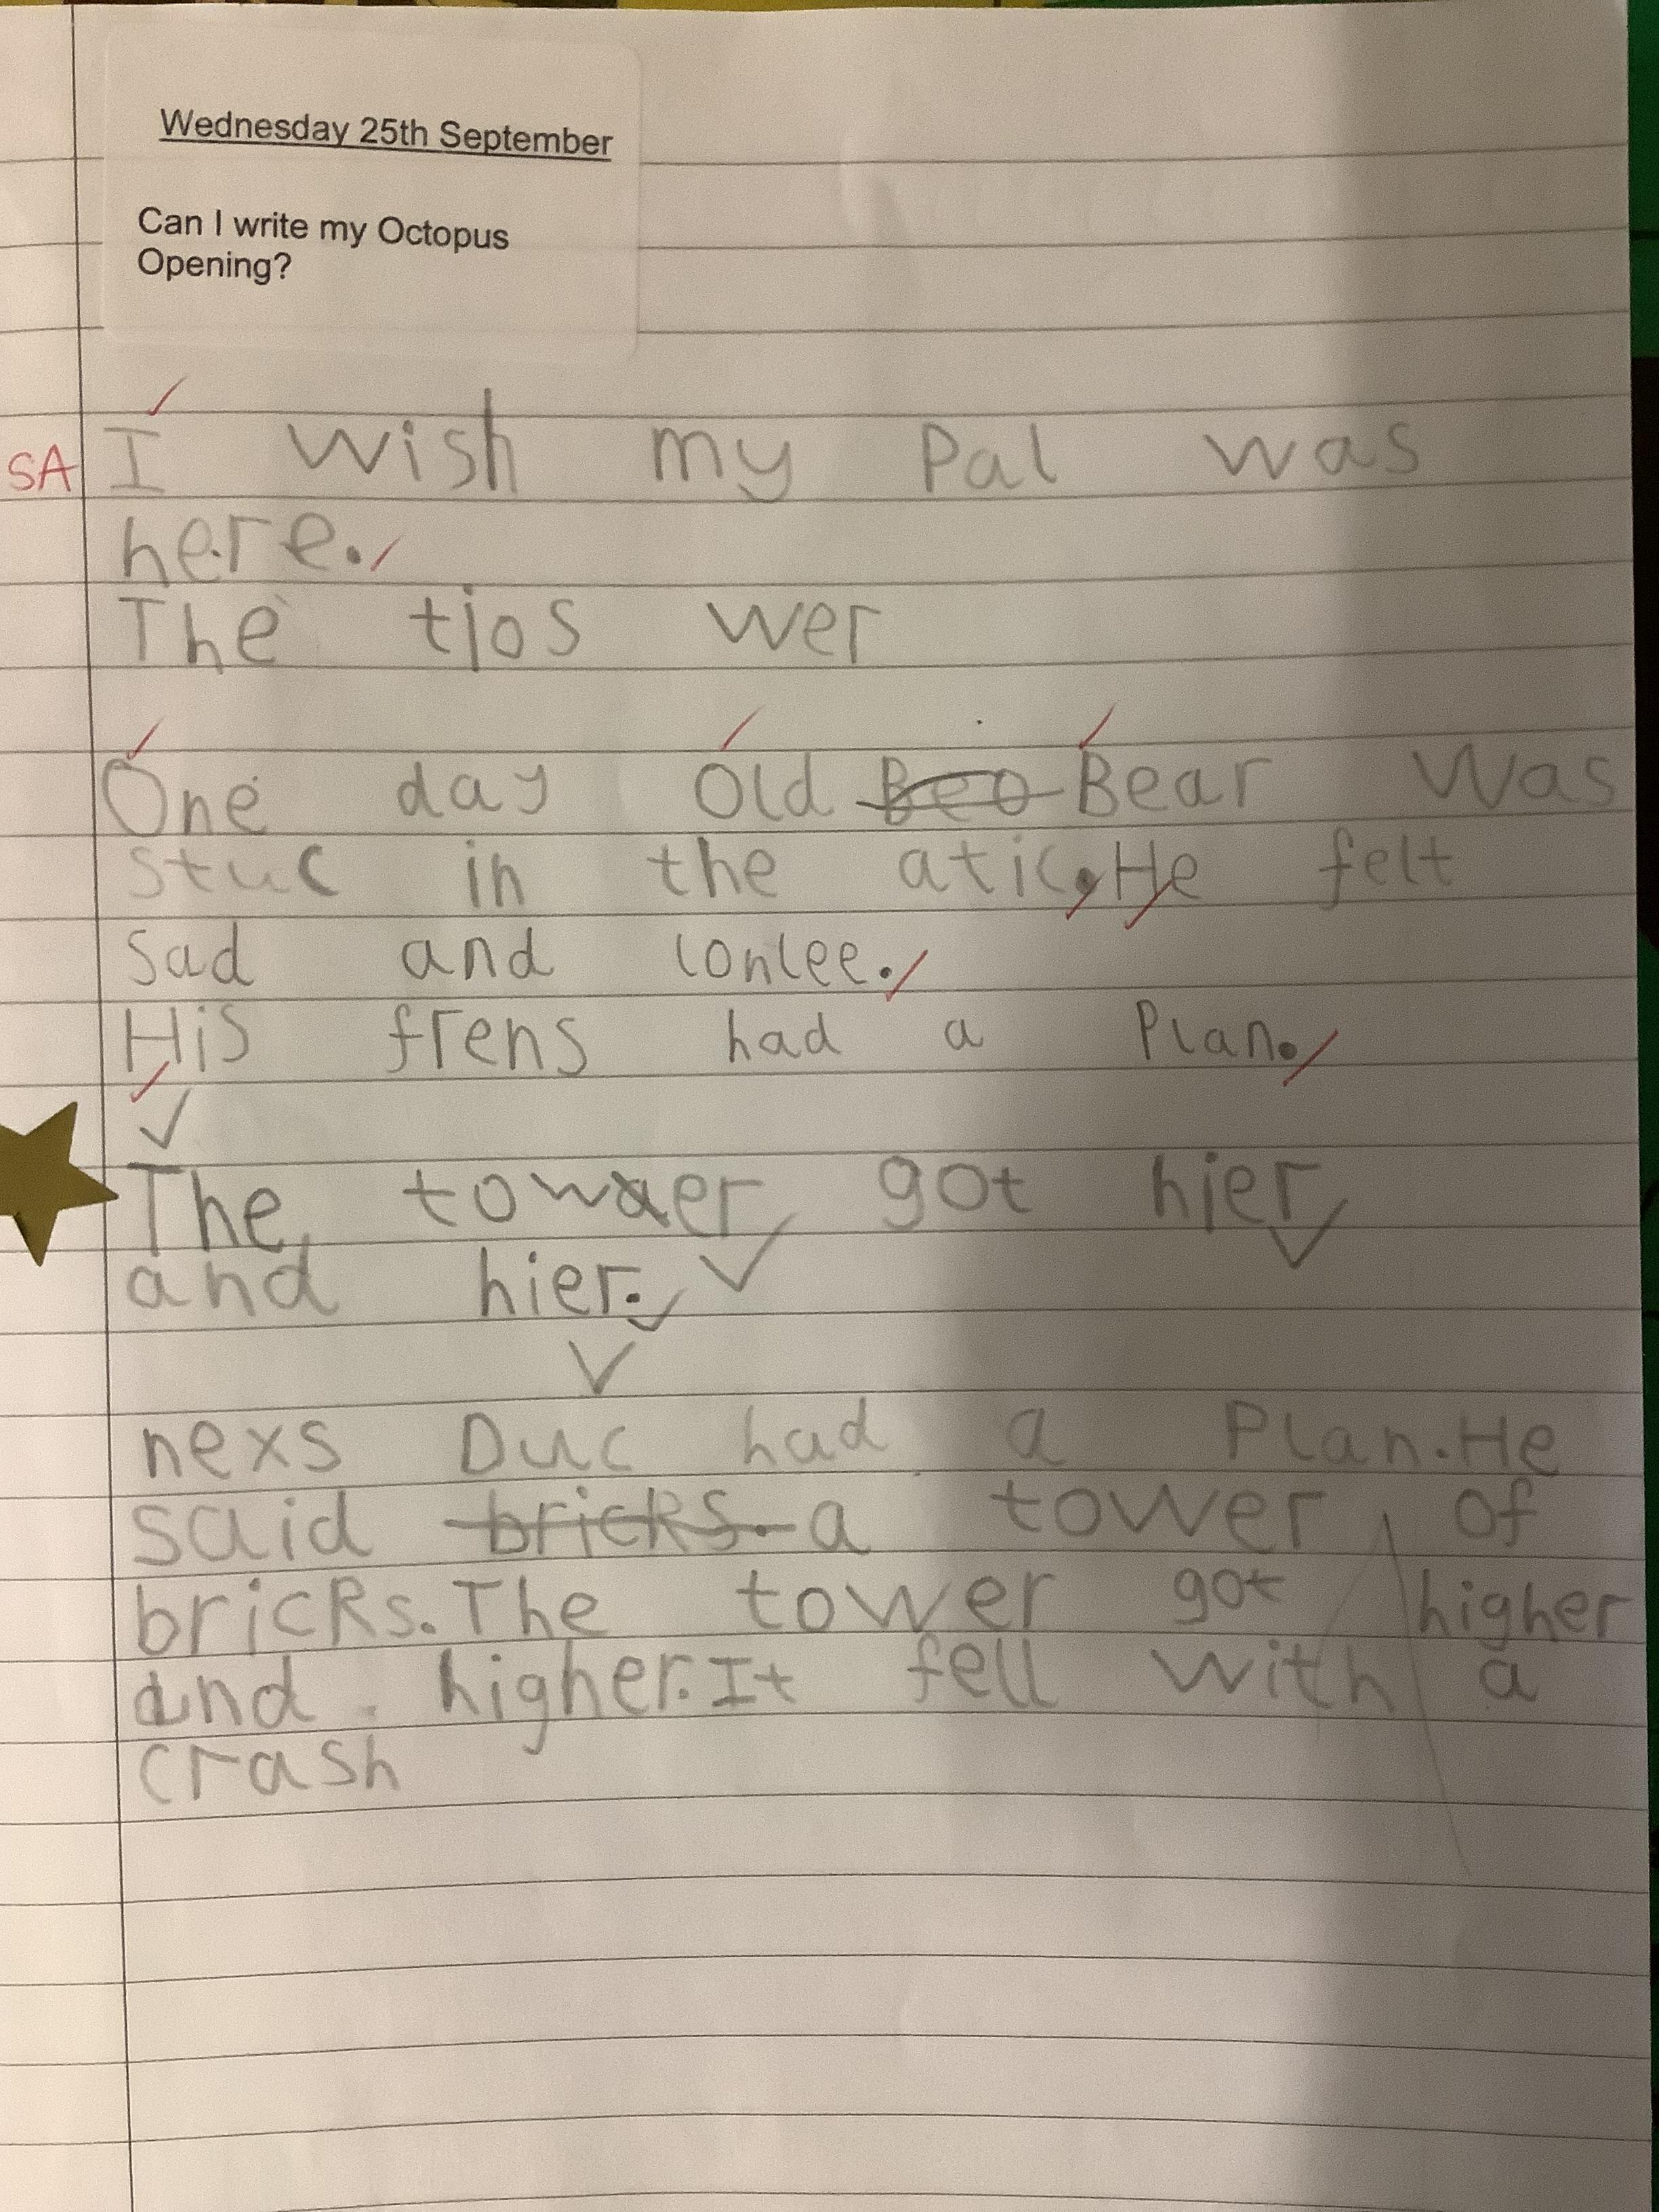 Wednesday 25th September
Can I write my Octopus
Opening?
SA I wish my Pal was
here.
The tjos wer
One day Old Beo Bear Was
stuc in the atic, He felt
Sad and lonlee.
His frens had a Plan.
The tower got hier
and hier.
nexs Duc had a Plan. He
said bricks. a tower of
bricks. The tower got higher
and higher. It fell with a
crash